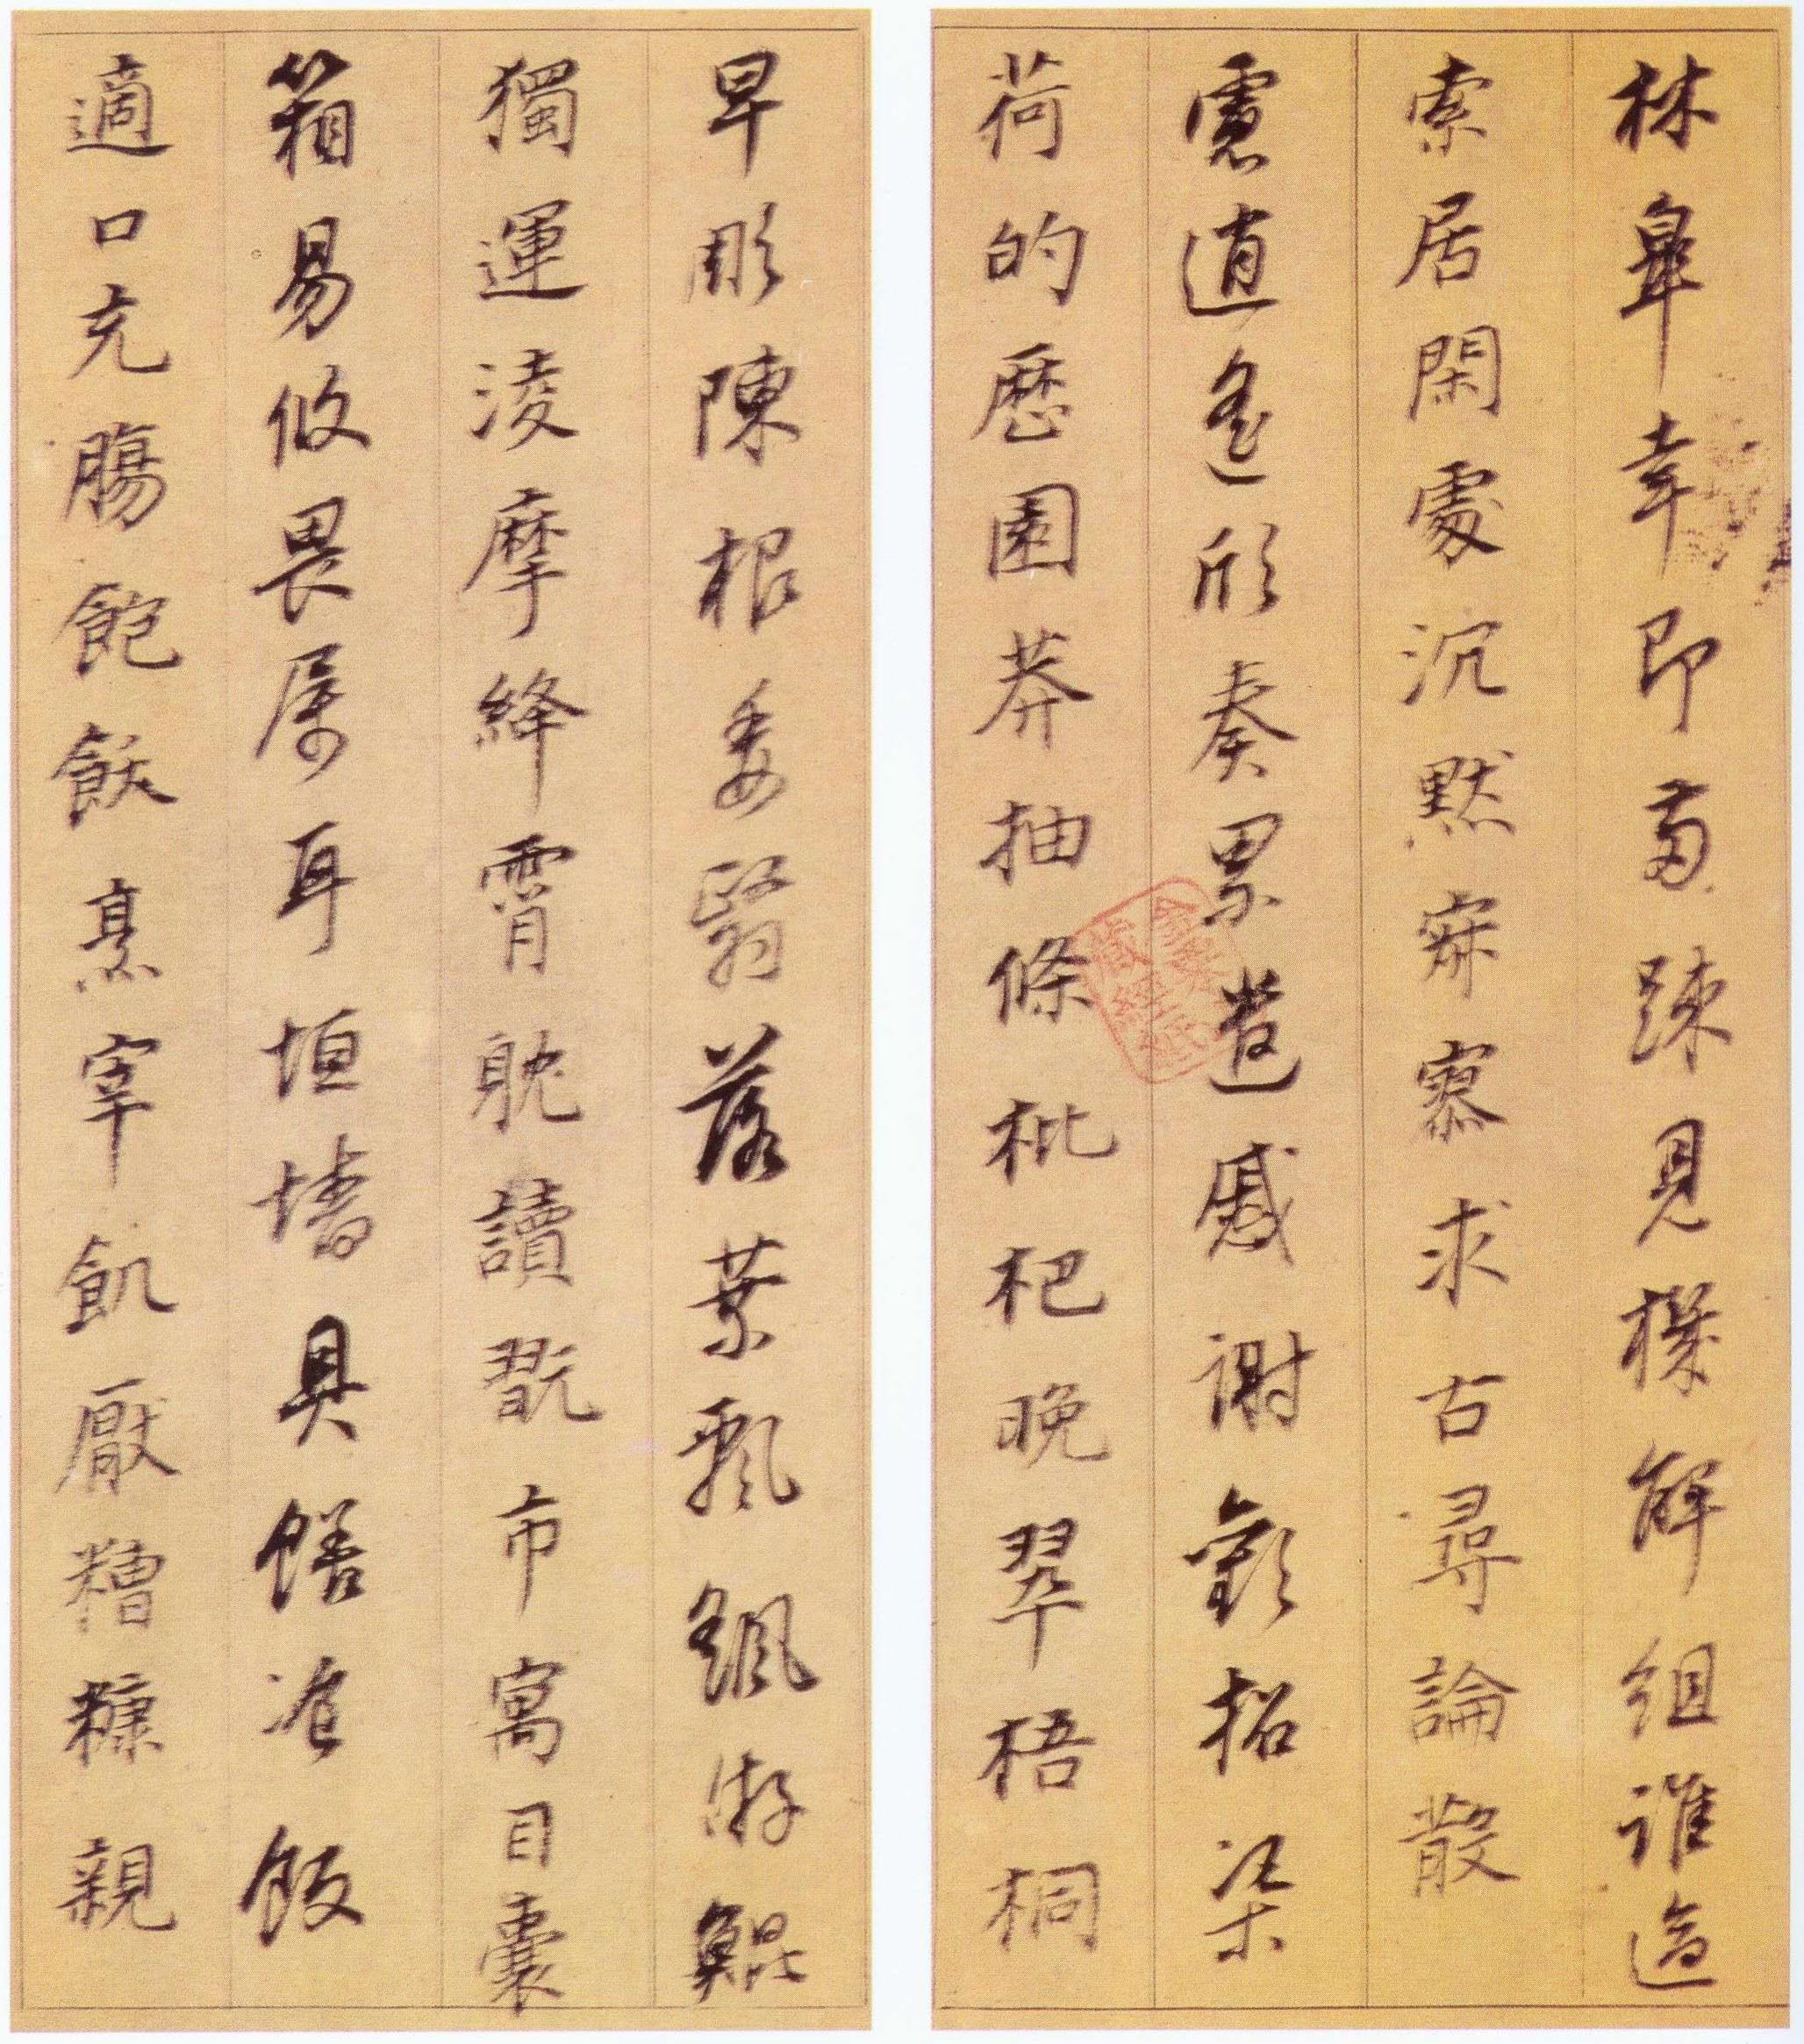 林皋幸即兩疎見機解組誰逼
索居閑處沉默寂寥求古尋論散
慮逍遙欣奏累遣慼謝歡招渠
荷的歷園莽抽條枇杷晚翠梧桐
早彫陳根委翳落葉飄飖游鯤
獨運淩摩絳霄躭讀翫市寓目囊
箱易攸畏屬耳垣墻具膳飡飯
適口充腸飽飫烹宰飢厭糟糠親